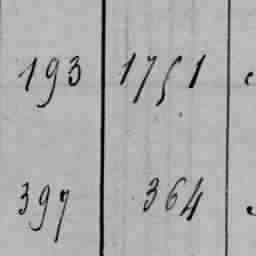 193 1751
397 364